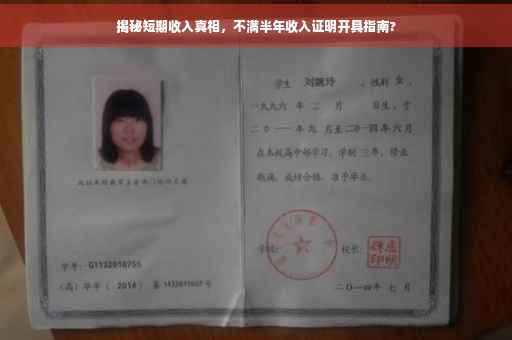 揭秘短期收入真相，不满半年收入证明开具指南?
学生 刘婉玲 ，性别 女 ，
一九九六 年 二 月 日生，于
二〇一一年九 月至二〇一四年六月
在本校高中部学习，学制 三年，修业
期满，成绩合格，准予毕业。
学校: 校长:
学号: G1132010755
(高) 毕字 ( 2014 ) 第 1432011027 号
二〇一四年 七 月